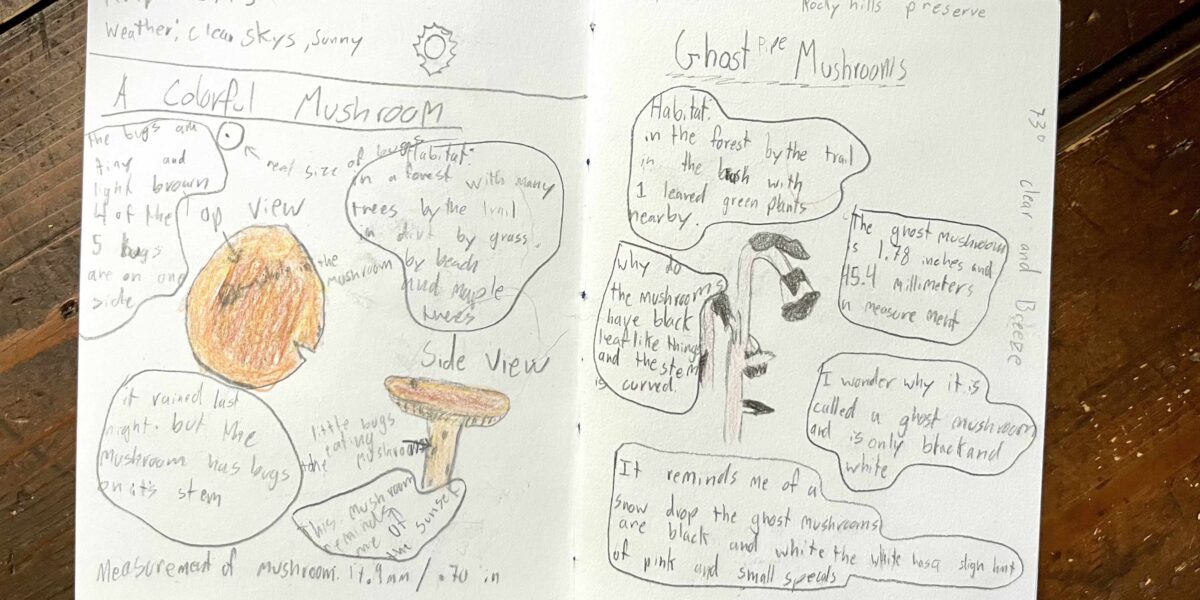 Weather: clear skys, sunny
A Colorful Mushroom
The bugs are
tiny and
light brown
4 of the
5 bugs
are on one
side
real size of bugs
Habitat:
in a forest with many
trees by the trail
in dirt by grass,
by beach
and maple
trees
op view
in the
mushroom
Side view
it rained last
night. but the
mushroom has bugs
on it's stem
little bugs
eating
the mushroom
This mushroom
reminds
me of
the sunset
Measurement of mushroom. 17.9mm/.70 in
Rocky hills preserve
Ghost Pipe Mushrooms
Habitat:
in the forest by the trail
in the with
1 leaved green plants
nearby.
730 clear and Breeze
The ghost mushroom
is 1.78 inches and
45.4 millimeters
n measure ment
why do
the mushrooms
have black
leaf like things
and the stem
is curved.
I wonder why it is
called a ghost mushroom
and is only black and
white
It reminds me of a
snow drop the ghost mushrooms
are black and white the white has a sligh hint
of pink and small specals